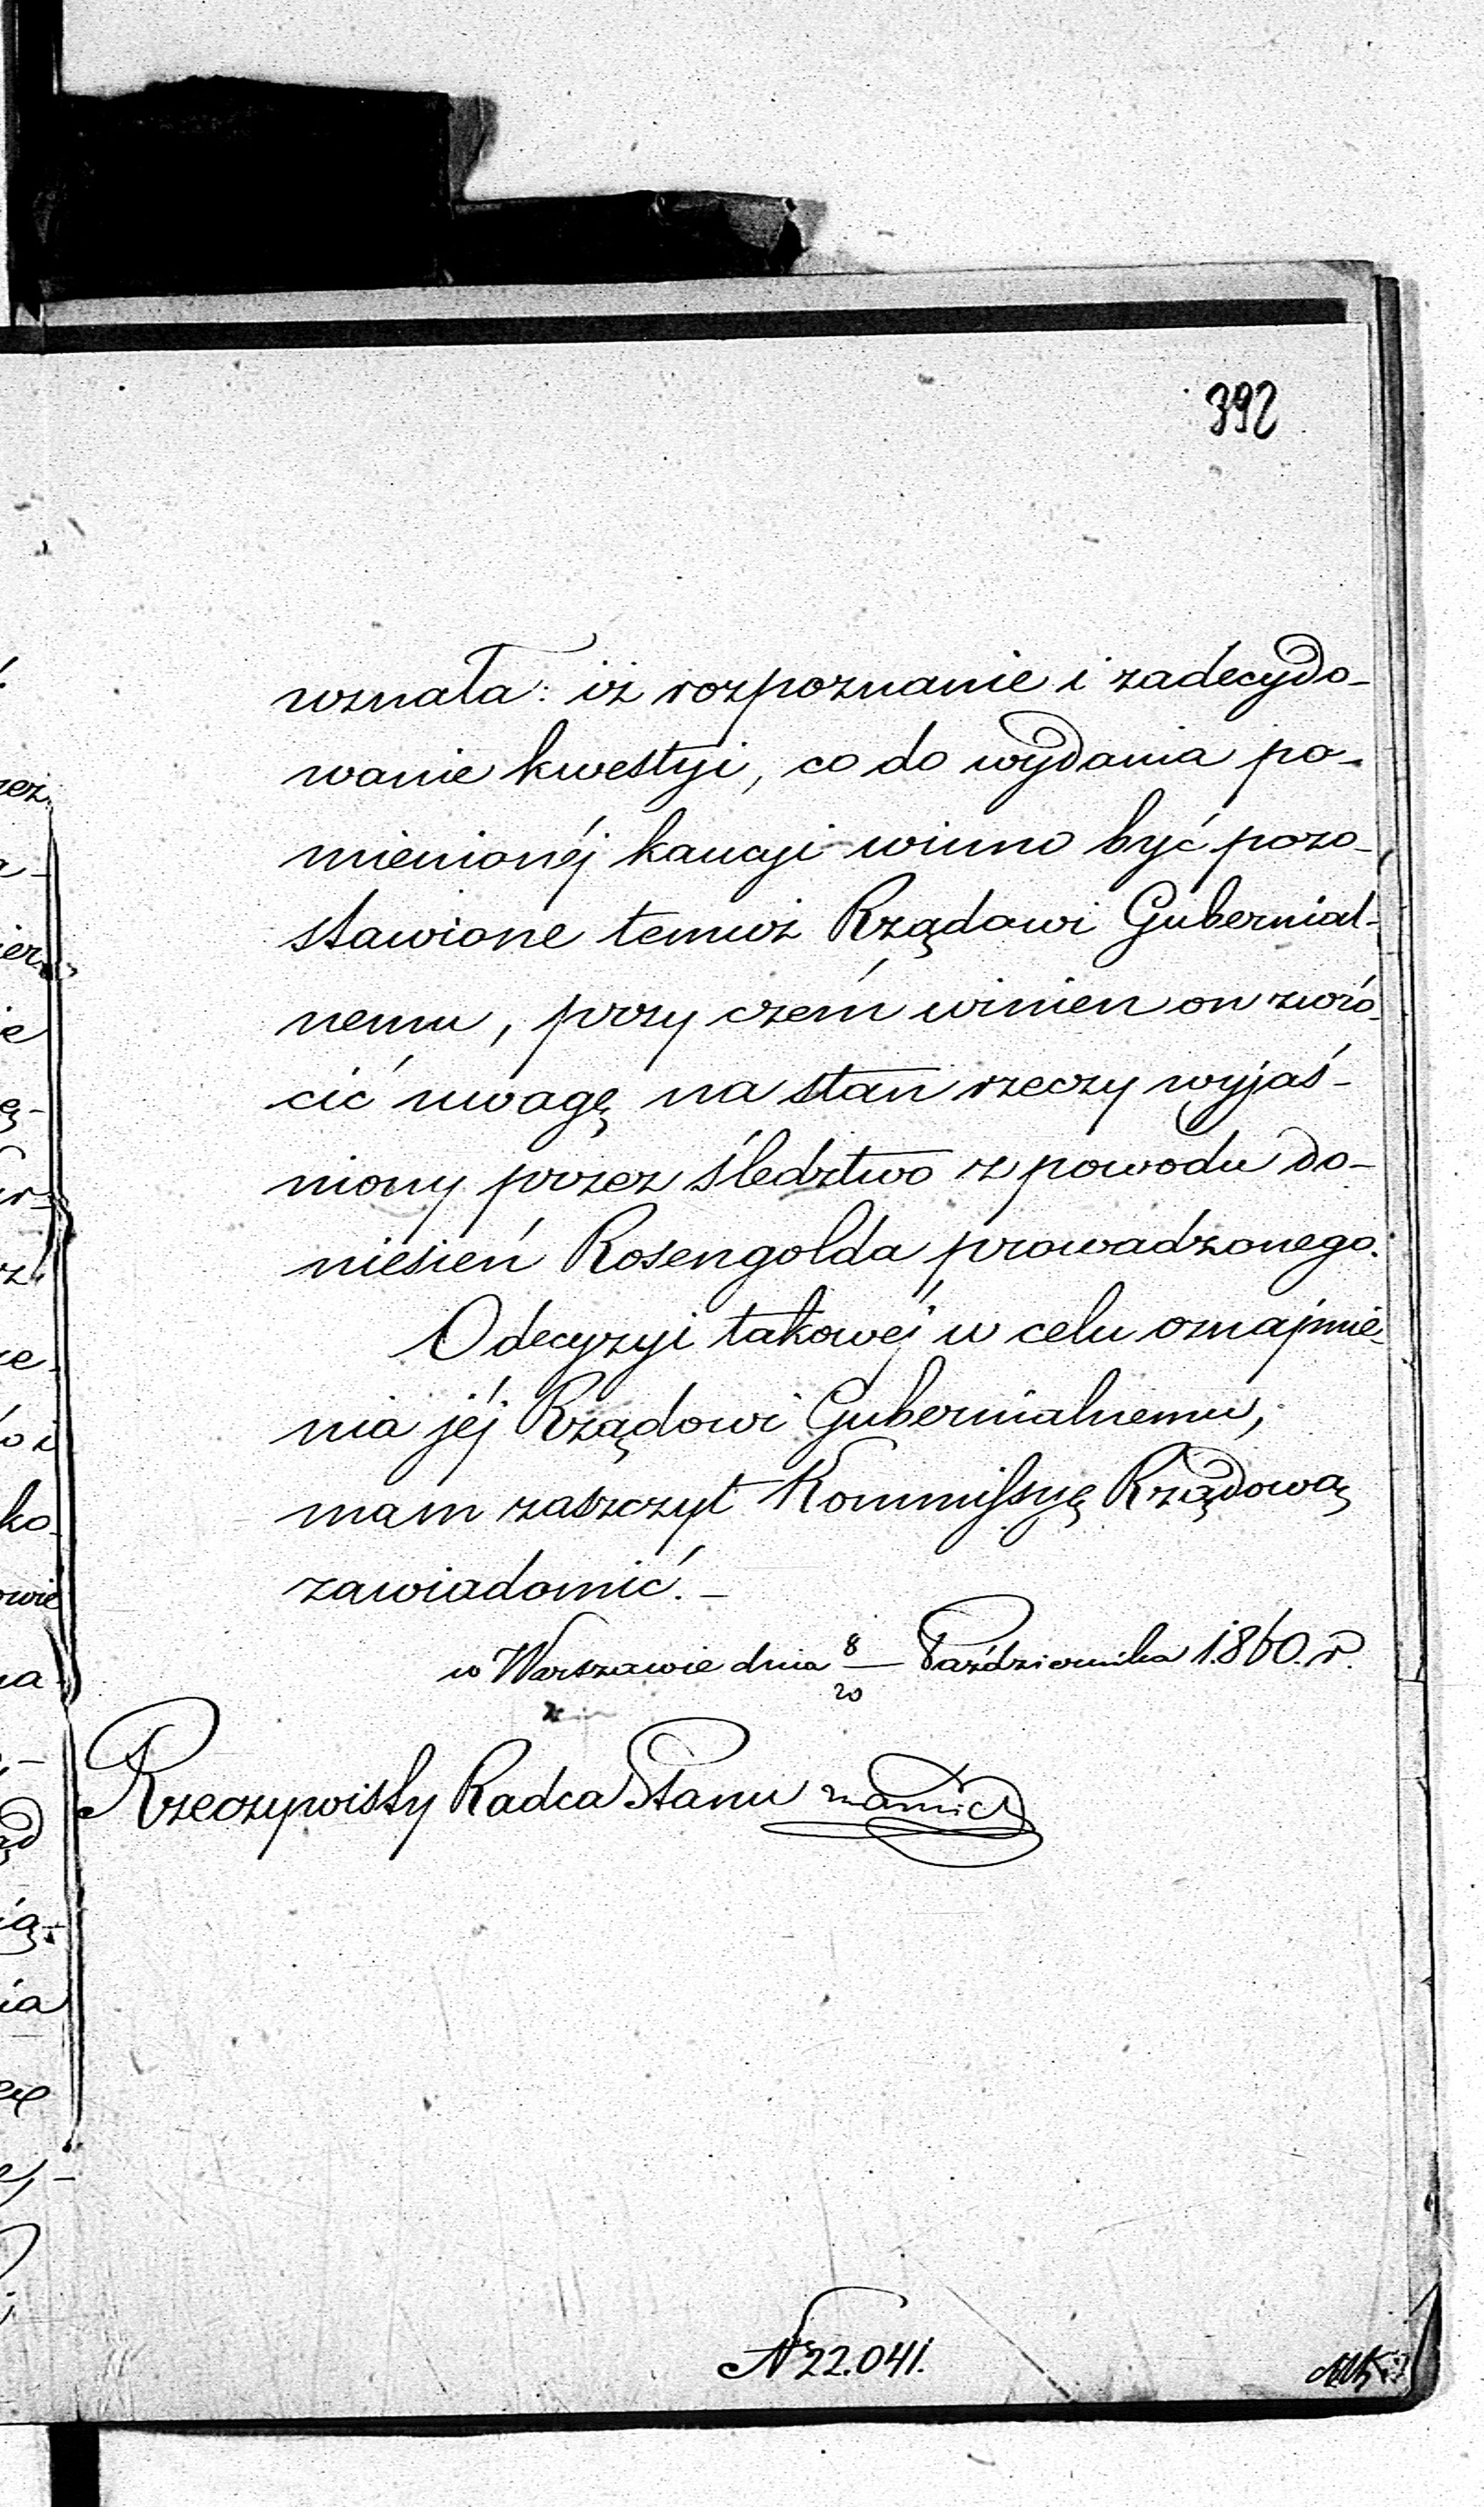 392
uznała: iż rozpoznanie i zadecydo-
wanie kwestyi, co do wydania po-
mienionéj kaucyi winno być pozo-
stawione temuż Rządowi Gubernial-
nemu, przy czém winien on zwró-
cić uwagę na stan rzeczy wyjaś-
niony przez śledztwo z powodu do-
niesień Rosengolda prowadzonego.
O decyzyi takowéj w celu oznajmie-
nia jéj Rządowi Gubernialnemu,
mam zaszczyt Kommissyę Rządową
zawiadomić. -
w Warszawie dnia 8/20 Października 1860. r.
Rzeczywisty Radca Stanu
N 22.041.